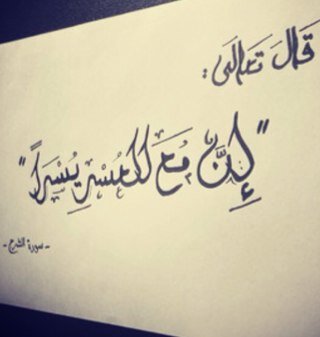 قَالَ تَعَالَى :
"إِنَّ مَعَ العُسْرِ يُسْرَاً"
- سورة الشرح -